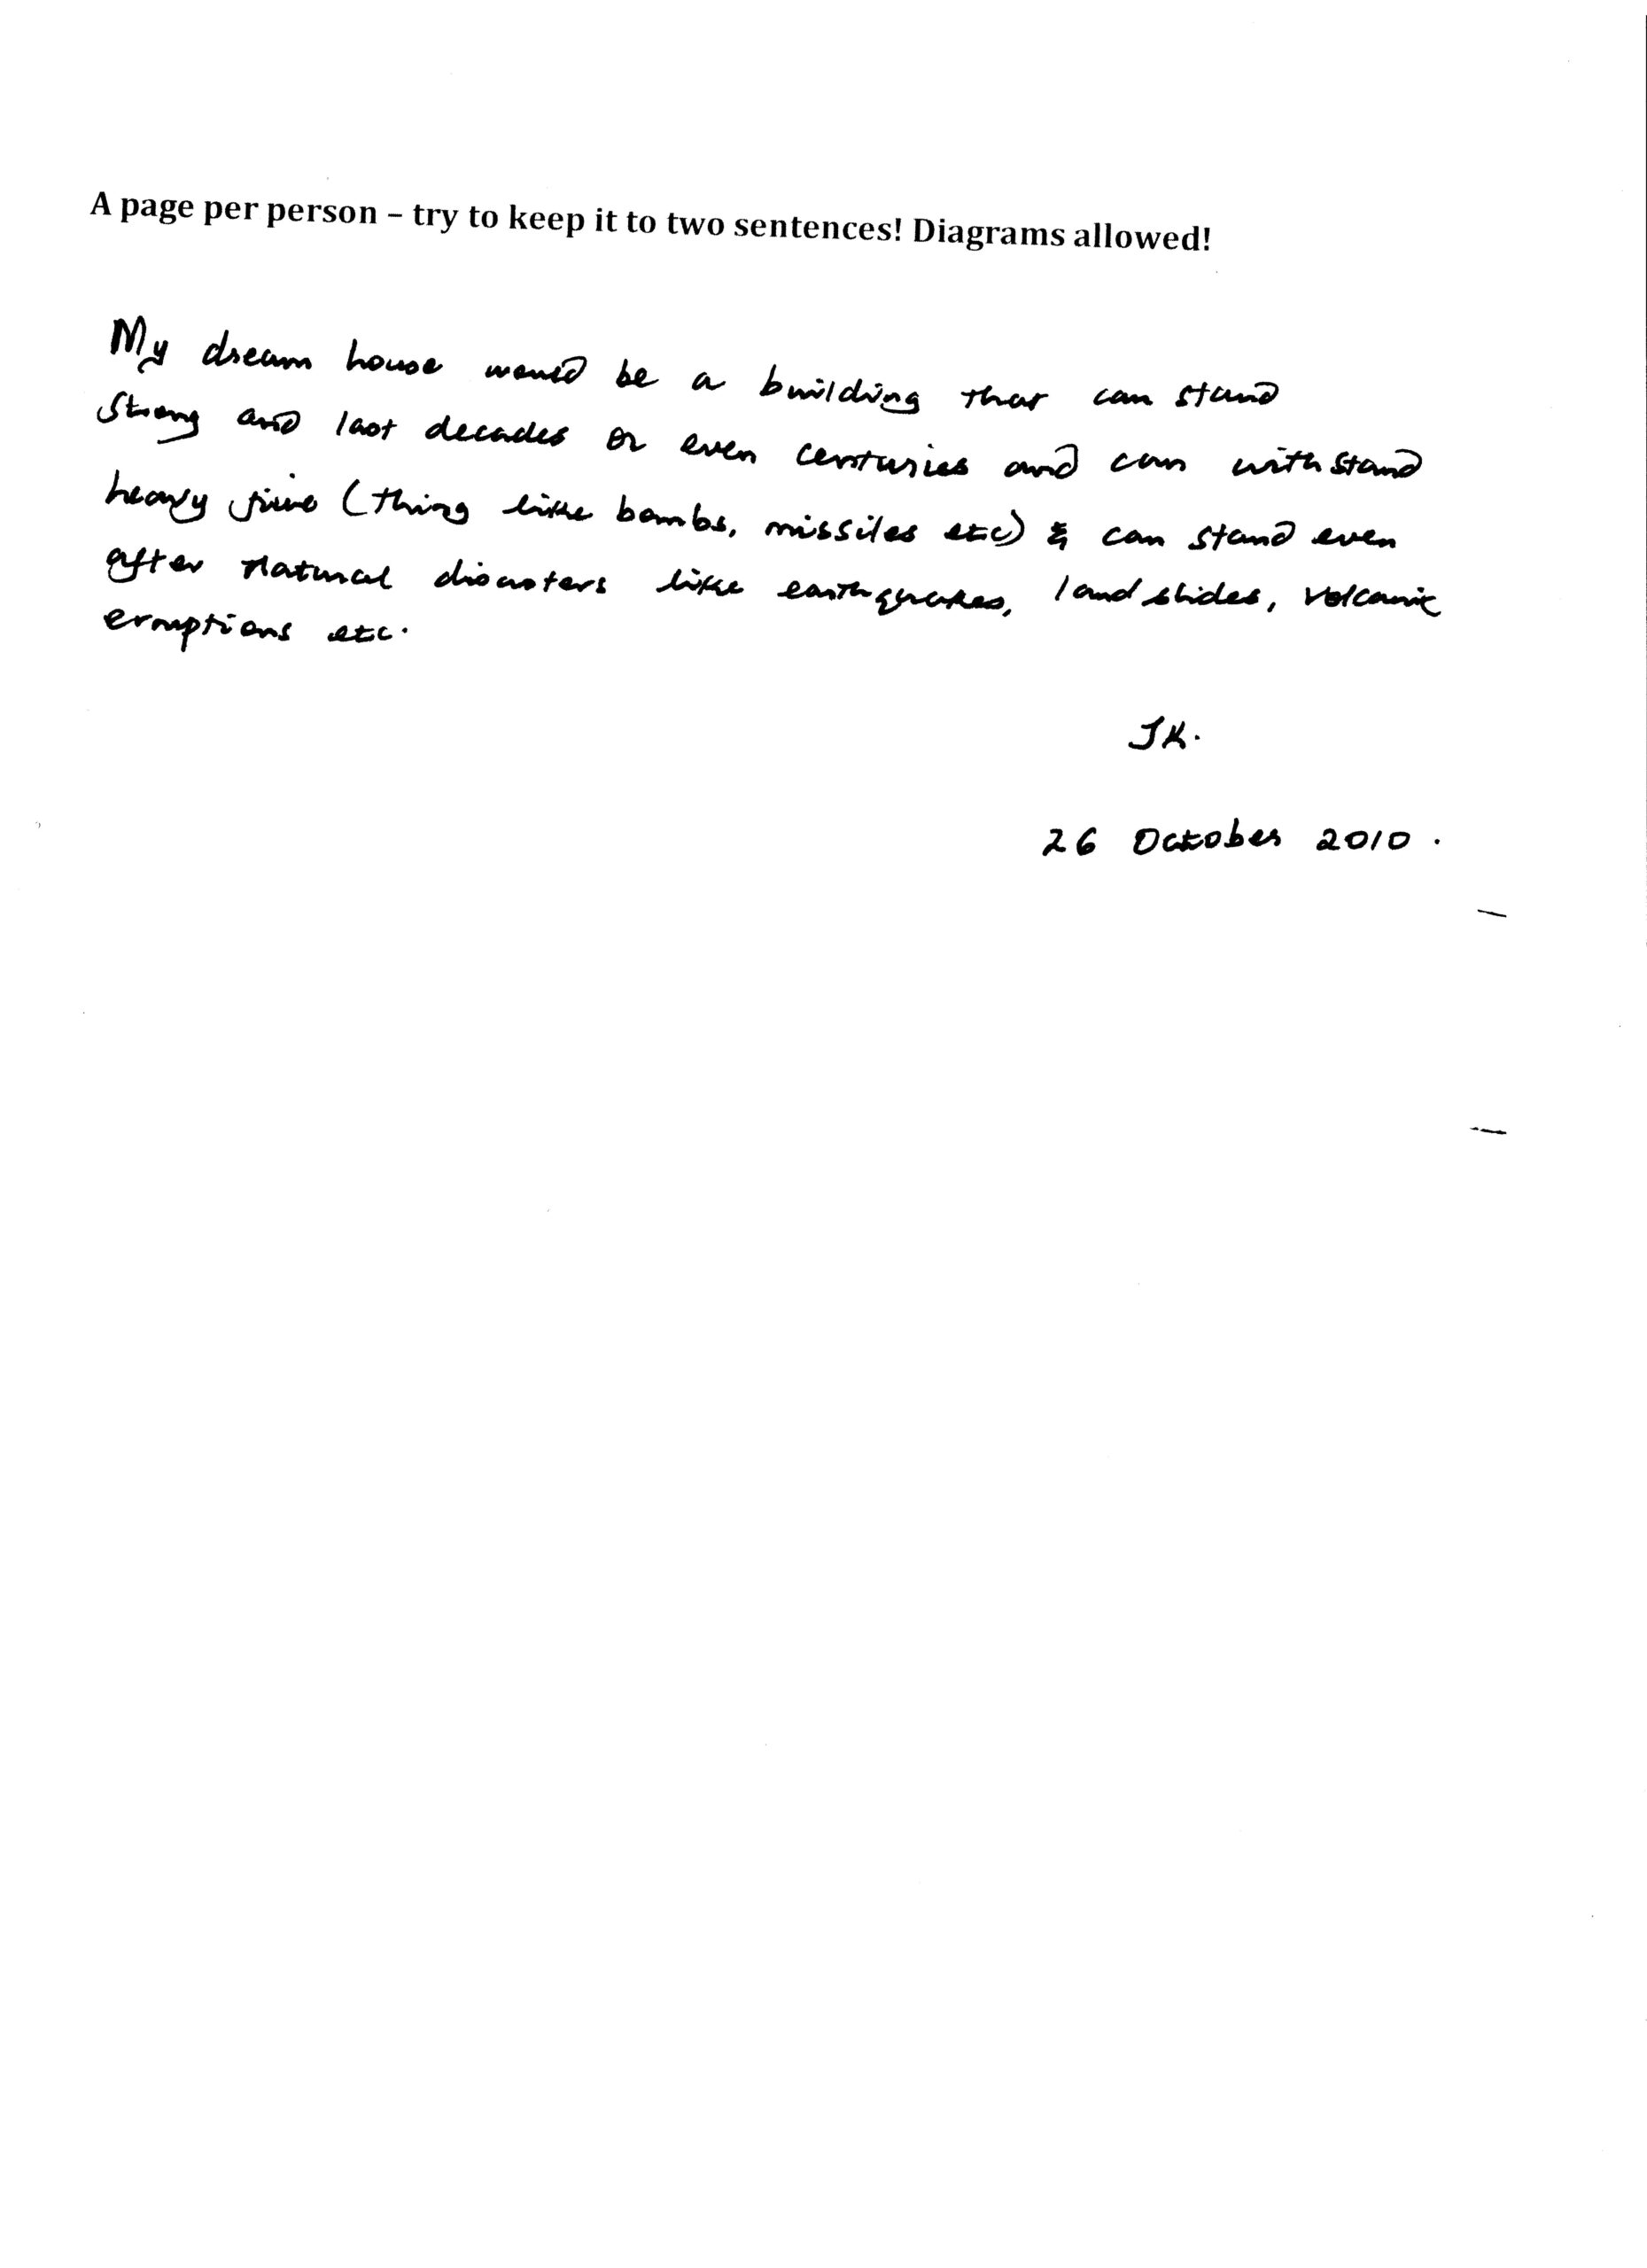 A page per person – try to keep it to two sentences! Diagrams allowed!
My dream house would be a building that can stand
strong and last decades or even centuries and can withstand
heavy fire (thing like bombs, missiles etc) & can stand even
after natural disasters like earthquakes, land slides, volcanic
eruptions etc.
JK.
26 October 2010.